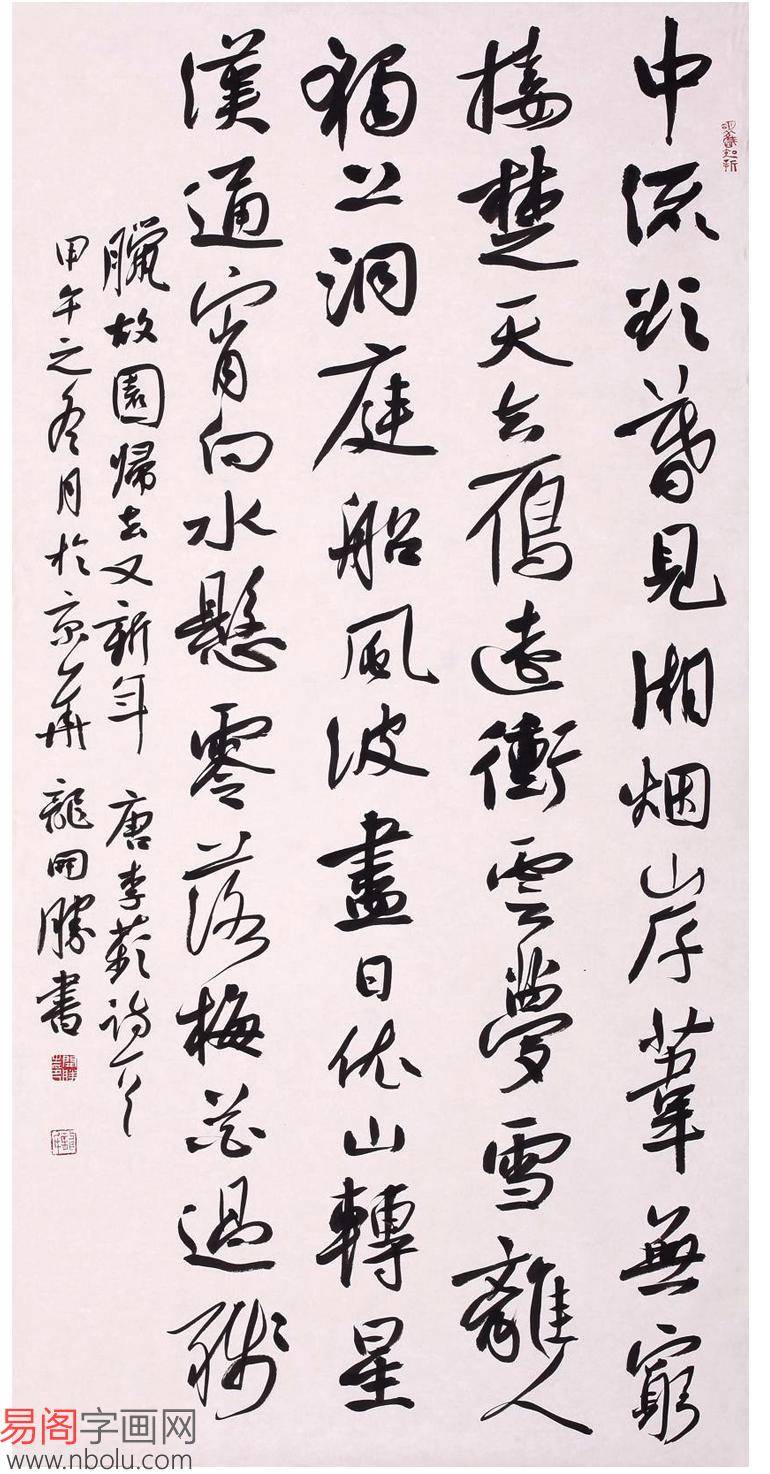 中流欲暮見湘烟岸葦無窮
接楚天去鴈遠衝雲夢雪離人
獨上洞庭船風波盡日依山轉星
漢通宵向水懸零落梅花過殘
臘故園歸去又新年 唐李詩一首
甲午之冬月於京華 龍開勝書
易阁字画网
www.nbolu.com